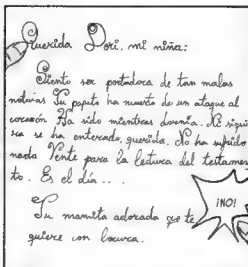 Querida Dori, mi niña:
Siento ser portadora de tan malas
noticias Tu papito ha muerto de un ataque al
corazón Ha sido mientras dormía. Ni siquie
ra se ha enterado, querida. No ha sufrido
nada Vente para la lectura del testamen
to. Es el día...
Tu mamita adorada que te
quiere con locura.
¡NO!